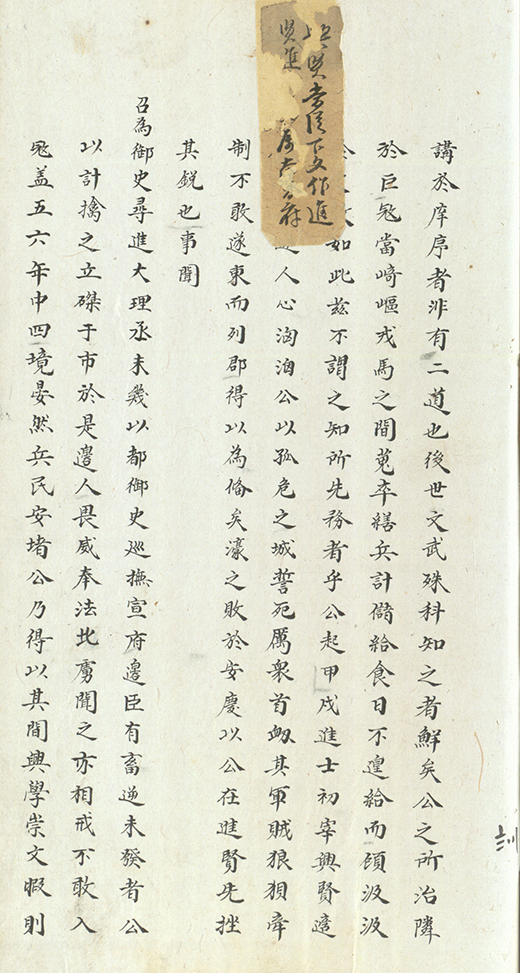 訓
講於庠序者非有二道也後世文武殊科知之者鮮矣公之所治隣
於巨虜當崎嶇戎馬之間蒐卒繕兵計儲給食日不遑給而頋汲汲
如此茲不謂之知所先務者乎公起甲戌進士初宰興賢適
人心洶洶公以孤危之城誓死厲衆首衂其軍賊狼狽牽
制不敢遂東而列郡得以為備矣濠之敗於安慶以公在進賢先挫
其銳也事聞
召為御史尋進大理丞未幾以都御史巡撫宣府邊臣有畜逆未發者公
以計擒之立磔于市於是邊人畏威奉法北虜聞之亦相戒不敢入
盖五六年中四境晏然兵民安堵公乃得以其間興學崇文暇則
賢當従下文作進
賢進